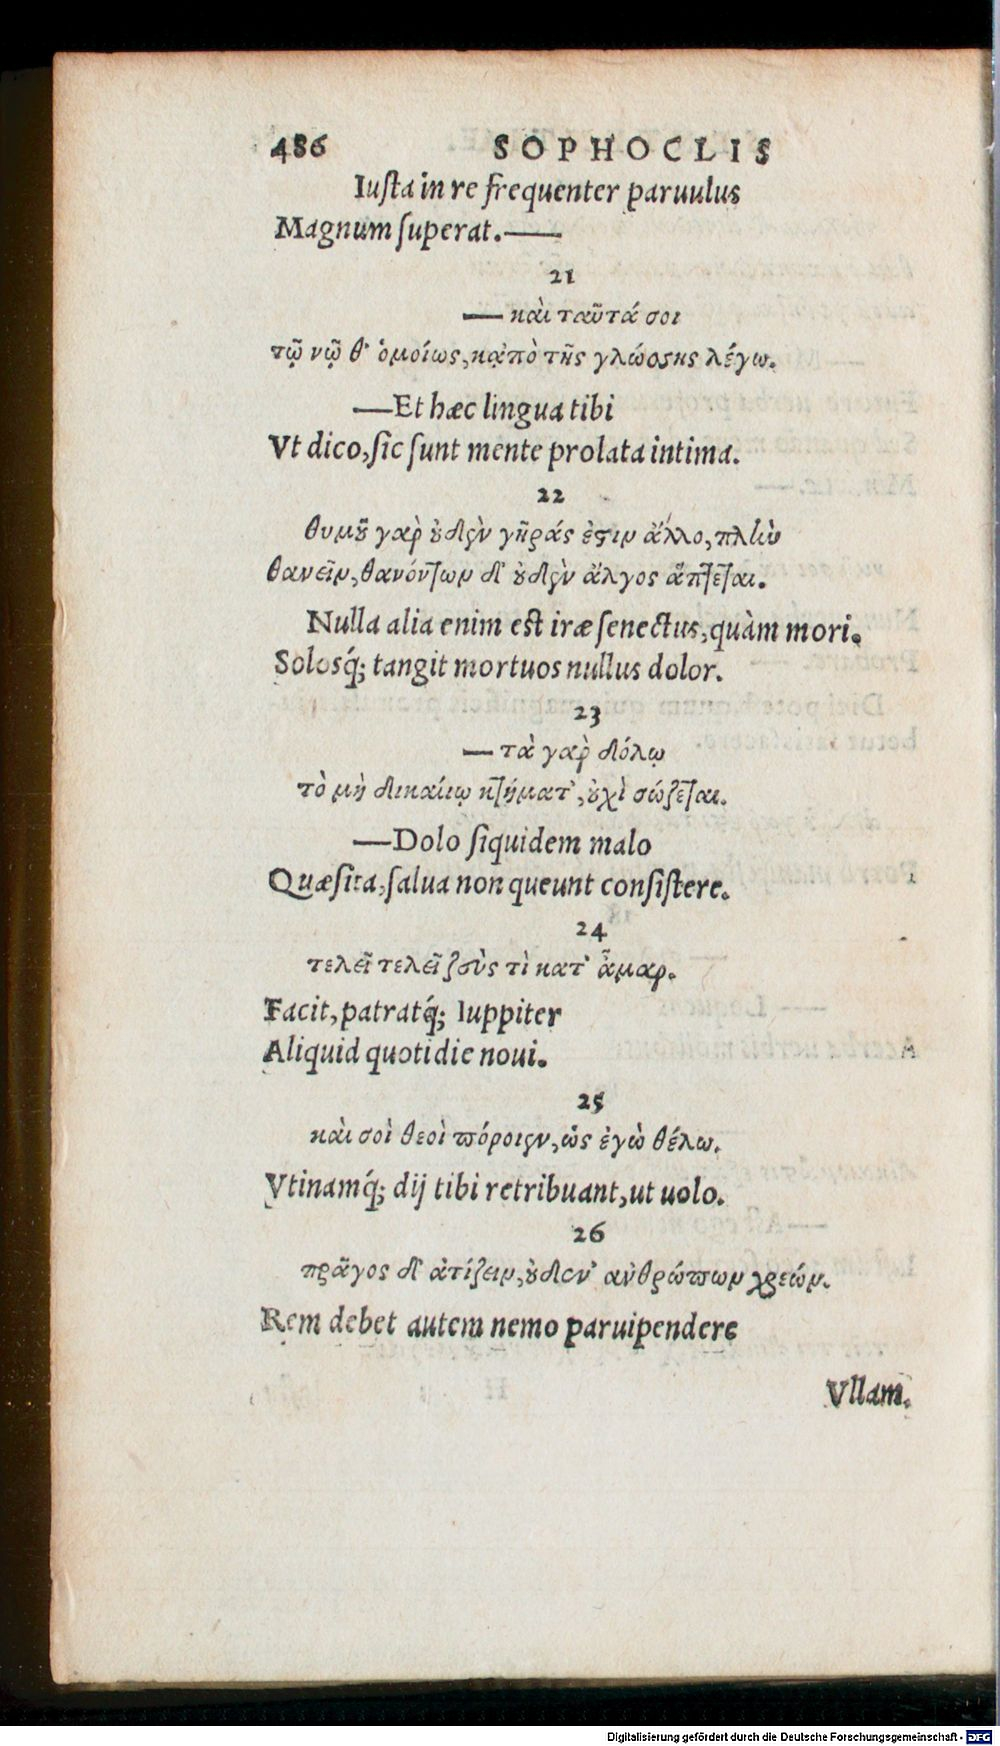 486 SOPHOCLIS
Iusta in re frequenter paruulus
Magnum superat.—
21
— καὶ ταῦτά σοι
τῷ νῷ θ' ὁμοίως, κἀπὸ τῆς γλώσσης λέγω.
—Et hæc lingua tibi
Vt dico, sic sunt mente prolata intima.
22
θυμοῦ γὰρ οὐδὲν γῆράς ἐστιν ἄλλο, πλὴν
θανεῖν, θανόντων δ' οὐδὲν ἄλγος ἅπτεται.
Nulla alia enim est iræ senectus, quàm mori.
Solosq́; tangit mortuos nullus dolor.
23
— τὰ γὰρ δόλῳ
τὸ μὴ δικαίῳ κτήματ', οὐχὶ σώζεται.
—Dolo siquidem malo
Quæsita, salua non queunt consistere.
24
τελεῖ τελεῖ ζεὺς τὶ κατ' ἆμαρ.
Facit, patratq́; Iuppiter
Aliquid quotidie noui.
25
καὶ σοὶ θεοὶ πόροιεν, ὡς ἐγὼ θέλω.
Vtinamq́; dij tibi retribuant, ut uolo.
26
πρᾶγος δ' ἀτίζειν, οὐδεν' ἀνθρώπων χρεών.
Rem debet autem nemo paruipendere
Vllam.
Digitalisierung gefördert durch die Deutsche Forschungsgemeinschaft - DFG